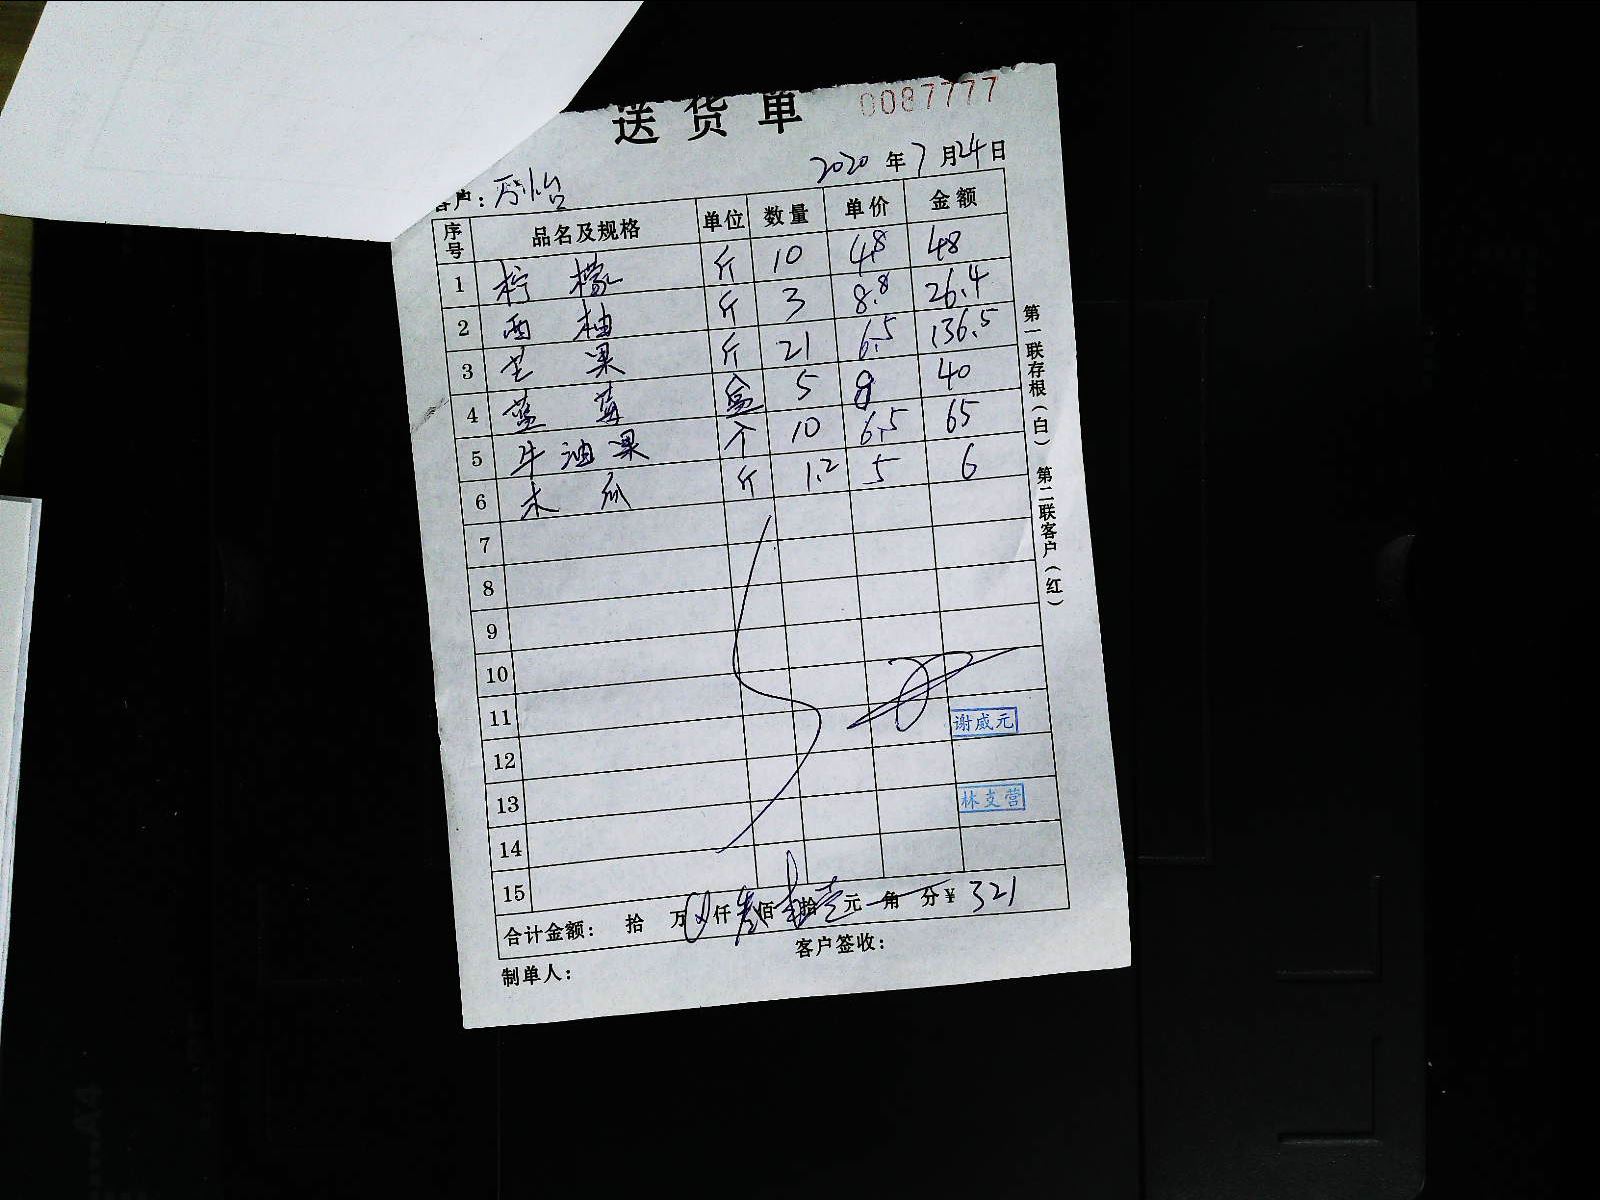 送货单 0087777
2020年7月24日
客户：万怡
序号 品名及规格 单位 数量 单价 金额
1 柠檬 斤 10 4.8 48
2 西柚 斤 3 8.8 26.4
3 芒果 斤 21 6.5 136.5
4 蓝莓 盒 5 8 40
5 牛油果 个 10 6.5 65
6 木瓜 斤 1.2 5 6
7
8
9
10
11 谢威元
12
13 林支营
14
15
合计金额： 拾 万 仟叁佰 拾壹元 角 分¥ 321
制单人： 客户签收：
第一联存根（白） 第二联客户（红）